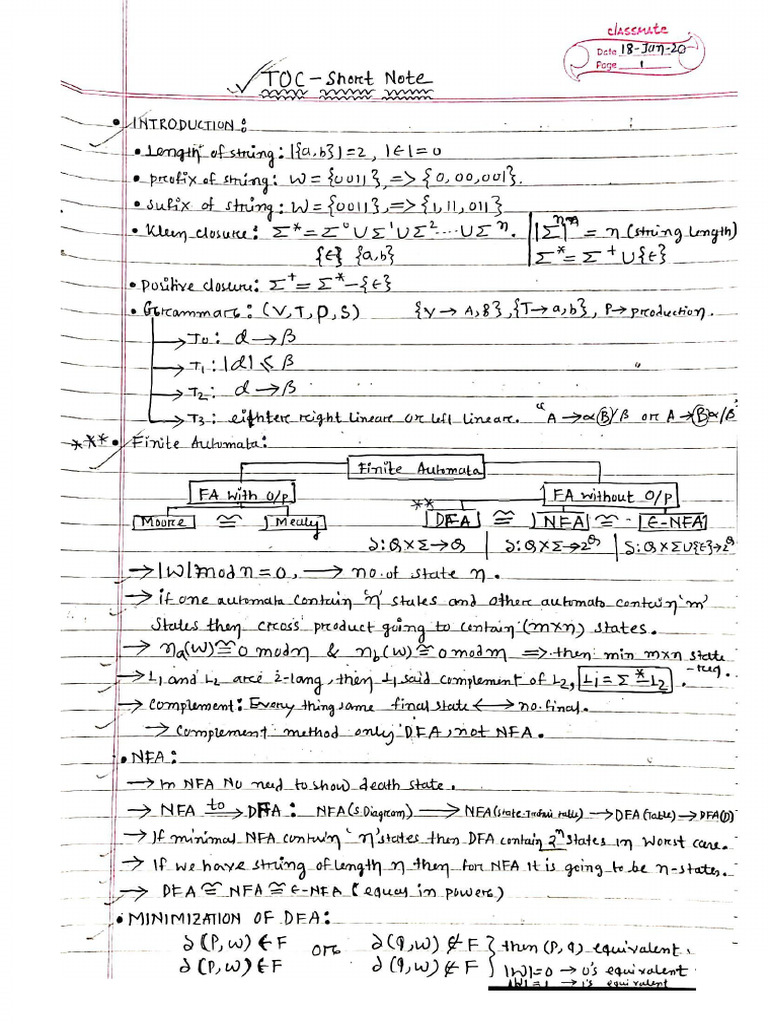 classmate
Date 18-Jun-20
Page 1
TOC - Short Note
• INTRODUCTION:
• Length of string: |{a,b}|=2, |ϵ|=0
• prefix of string: W={0011}, => {0,00,001}.
• Sufix of string: W={0011}, => {1,11,011}
• Kleen closure: Σ* = Σ⁰ U Σ¹ U Σ² ... U Σⁿ. |Σ|ⁿ = n (string length)
{ϵ} {a,b} Σ* = Σ⁺ U {ϵ}
• Positive closure: Σ⁺ = Σ* - {ϵ}
• Grammar: (V,T,P,S) {V → A,B}, {T → a,b}, P → production.
→ T0: α → β
→ T1: |α| ≤ β
→ T2: α → β
→ T3: eighter right linear or left linear. "A → αB/β or A → Bα/β"
*** • Finite Automata:
Finite Automata
FA with O/p FA without O/p
Moore ≅ Mealy ** DFA ≅ NFA ≅ ϵ-NFA
δ: Q×Σ→Q | δ: Q×Σ→2^Q | δ: Q×ΣU{ϵ}→2^Q
→ |W| mod n = 0, → no. of state n.
→ if one automata contain 'n' states and other automata contain 'm'
states then cross product going to contain (m×n) states.
→ nₐ(W) ≅ 0 mod n & n_b(W) ≅ 0 mod m => then min m×n state
-req.
→ L₁ and L₂ are 2-lang, then L₁ said complement of L₂, L₁ = Σ* - L₂.
→ Complement: Every thing same final state ↔ no. final.
→ Complement method only DFA, not NFA.
• NFA:
→ In NFA No need to show death state.
→ NFA to→ DFA: NFA (S.Diagram) → NFA (state-Trans table) → DFA (Table) → DFA(D)
→ If minimal NFA contain 'n' states then DFA contain 2ⁿ states in worst case.
→ If we have string of length n then for NFA it is going to be n-states.
→ DFA ≅ NFA ≅ ϵ-NFA (equas in powers)
• MINIMIZATION OF DFA:
∂(P,W) ∈ F or ∂(q,W) ∉ F } then (P,q) equivalent.
∂(P,W) ∈ F ∂(q,W) ∉ F } |W|=0 → 0's equivalent
|W|=1 → 1's equivalent